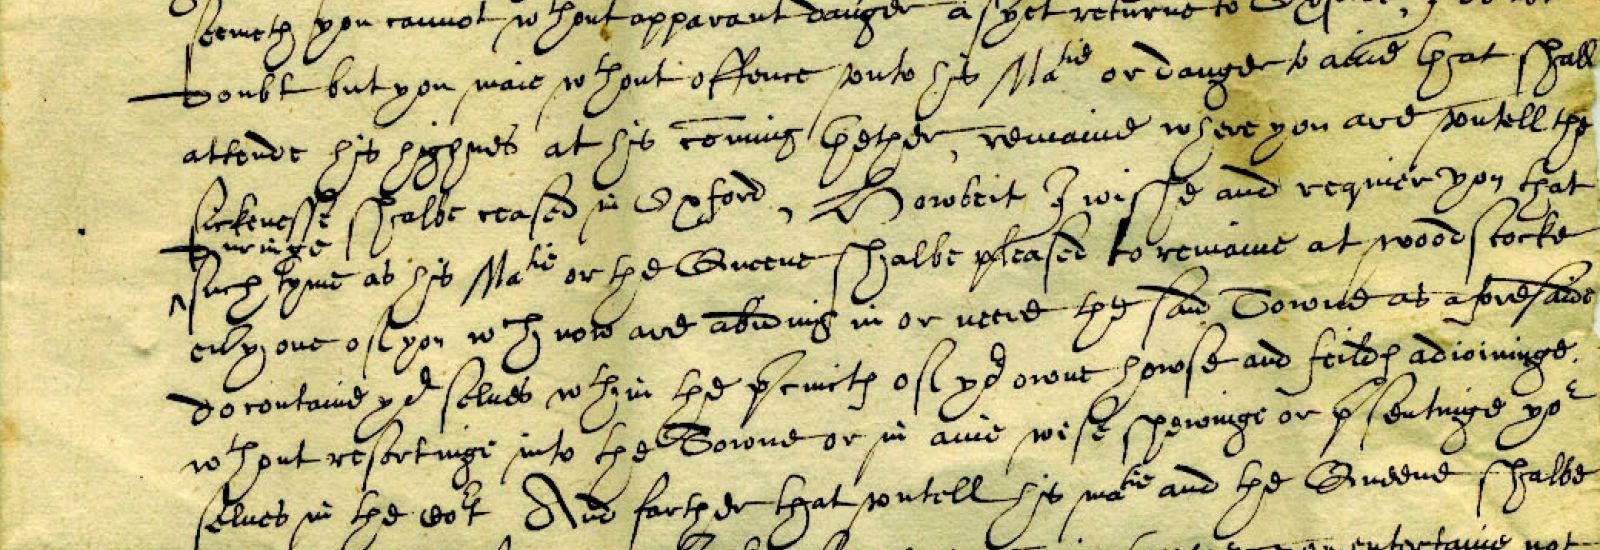 seemeth you cannot wthout apparant danger as yet returne to Oxford, I do not
doubt but you maie wthout offence unto his Matie or danger to anie that shall
attende his highnes at his coming hether, remaine where you are untell the
sickenesse shalbe ceased in Oxford, Howbeit I wishe and requier you that
duringe
^ such tyme as his Matie or the Queene shalbe pleased to remaine at woodstocke
evyone of you wch now are abiding in or neere the said Towne as aforesaide
do containe yor selves wthin the pcincts of yor owne howse and feilds adioininge.
wthout resortinge into the Towne or in anie wise shewinge or psentinge yor
selves in the Cort And farther that untell his matie and the Queene shalbe
entertaine not